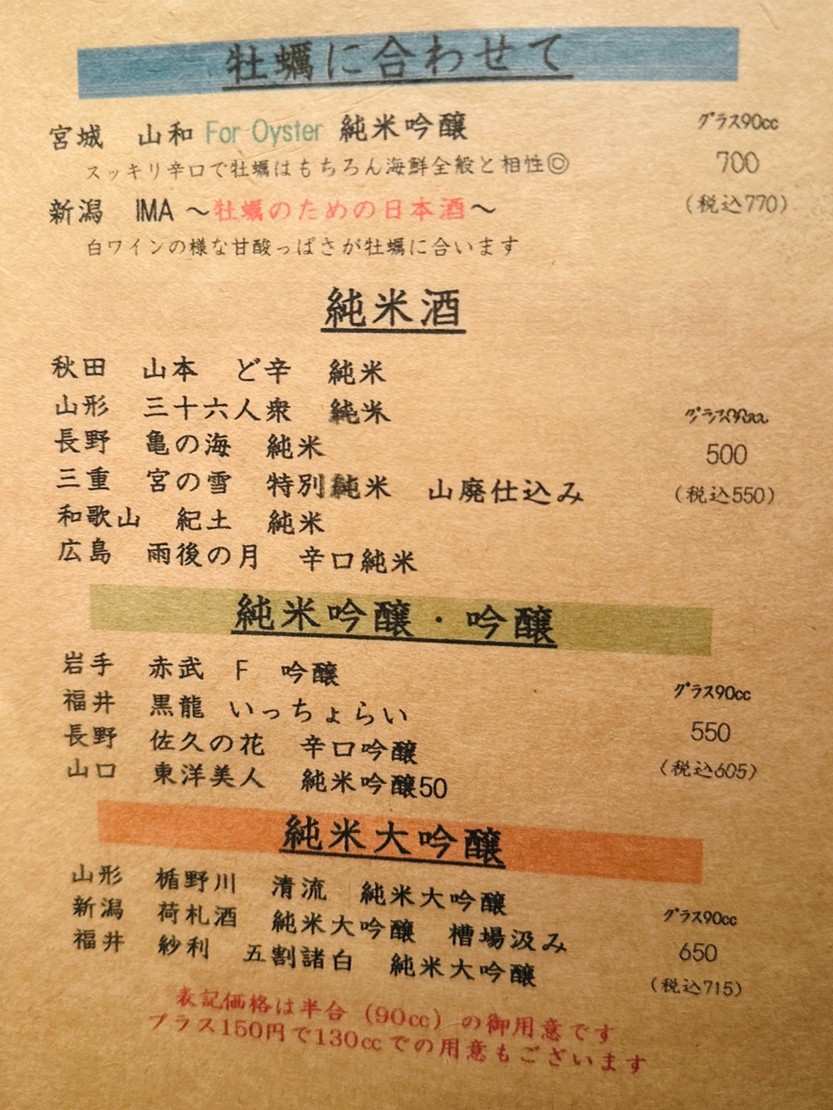 牡蠣に合わせて
宮城 山和 For Oyster 純米吟醸 グラス90cc
スッキリ辛口で牡蠣はもちろん海鮮全般と相性◎ 700
新潟 IMA ～牡蠣のための日本酒～ (税込770)
白ワインの様な甘酸っぱさが牡蠣に合います
純米酒
秋田 山本 ど辛 純米
山形 三十六人衆 純米 グラス90cc
長野 亀の海 純米 500
三重 宮の雪 特別純米 山廃仕込み (税込550)
和歌山 紀土 純米
広島 雨後の月 辛口純米
純米吟醸・吟醸
岩手 赤武 F 吟醸 グラス90cc
福井 黒龍 いっちょらい 550
長野 佐久の花 辛口吟醸 (税込605)
山口 東洋美人 純米吟醸50
純米大吟醸
山形 楯野川 清流 純米大吟醸 グラス90cc
新潟 荷札酒 純米大吟醸 槽場汲み 650
福井 紗利 五割諸白 純米大吟醸 (税込715)
表記価格は半合（90cc）の御用意です
プラス150円で130ccでの用意もございます